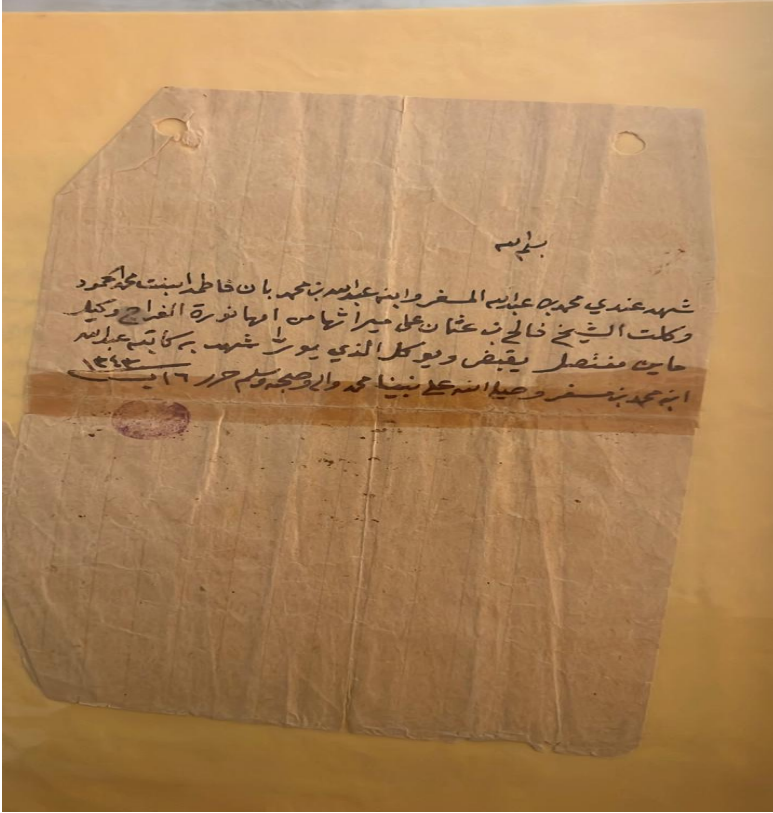 بسم الله
شهد عندي محمد بن عبدالله المسفر وابنه عبدالله بن محمد بان فاطمه ابنت محمد الحمود
وكلت الشيخ فالح بن عثمان على ميراثها من امها نورة الفراج وكيل
مفتصل يقبض ويوكل الذي شهد به كاتبه عبدالله
ابن محمد بن مسفر وصلى الله على نبينا محمد واله وصحبه وسلم حرر ١٦ ١٣٤٣